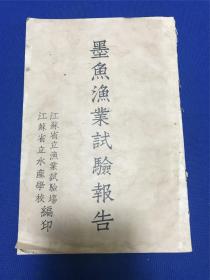 墨魚漁業試驗報告
江蘇省立漁業試驗場
江蘇省立水產學校
編印